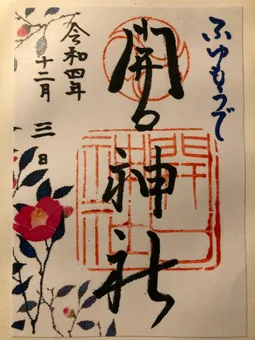 ふゆもうで
開口神社
開口
神社
令和四年
十二月 三日